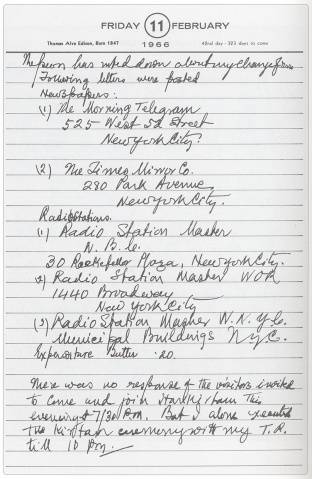 FRIDAY 11 FEBRUARY
Thomas Alva Edison, Born 1847 1966 42nd day - 323 days to come
has noted down about my change from
Following letters were posted
Newspapers:
(1) The Morning Telegram
525 West 52 Street
New York City.
(2) The Times Mirror Co.
280 Park Avenue,
New York City.
Radio Stations.
(1) Radio Station Master
N. B. C.
30 Rockefeller Plaza, New York City.
(2) Radio Station Master WOR
1440 Broadway
New York City
(3) Radio Station Master W. N. Y. C.
Municipal Buildings N.Y.C.
Expenditure Butter .20.
There was no response of the visitors invited
to come and join Sankirtan this
evening at 7/30 P.m. But I alone executed
the Kirtan ceremony with my T. R.
till 10 P.m.